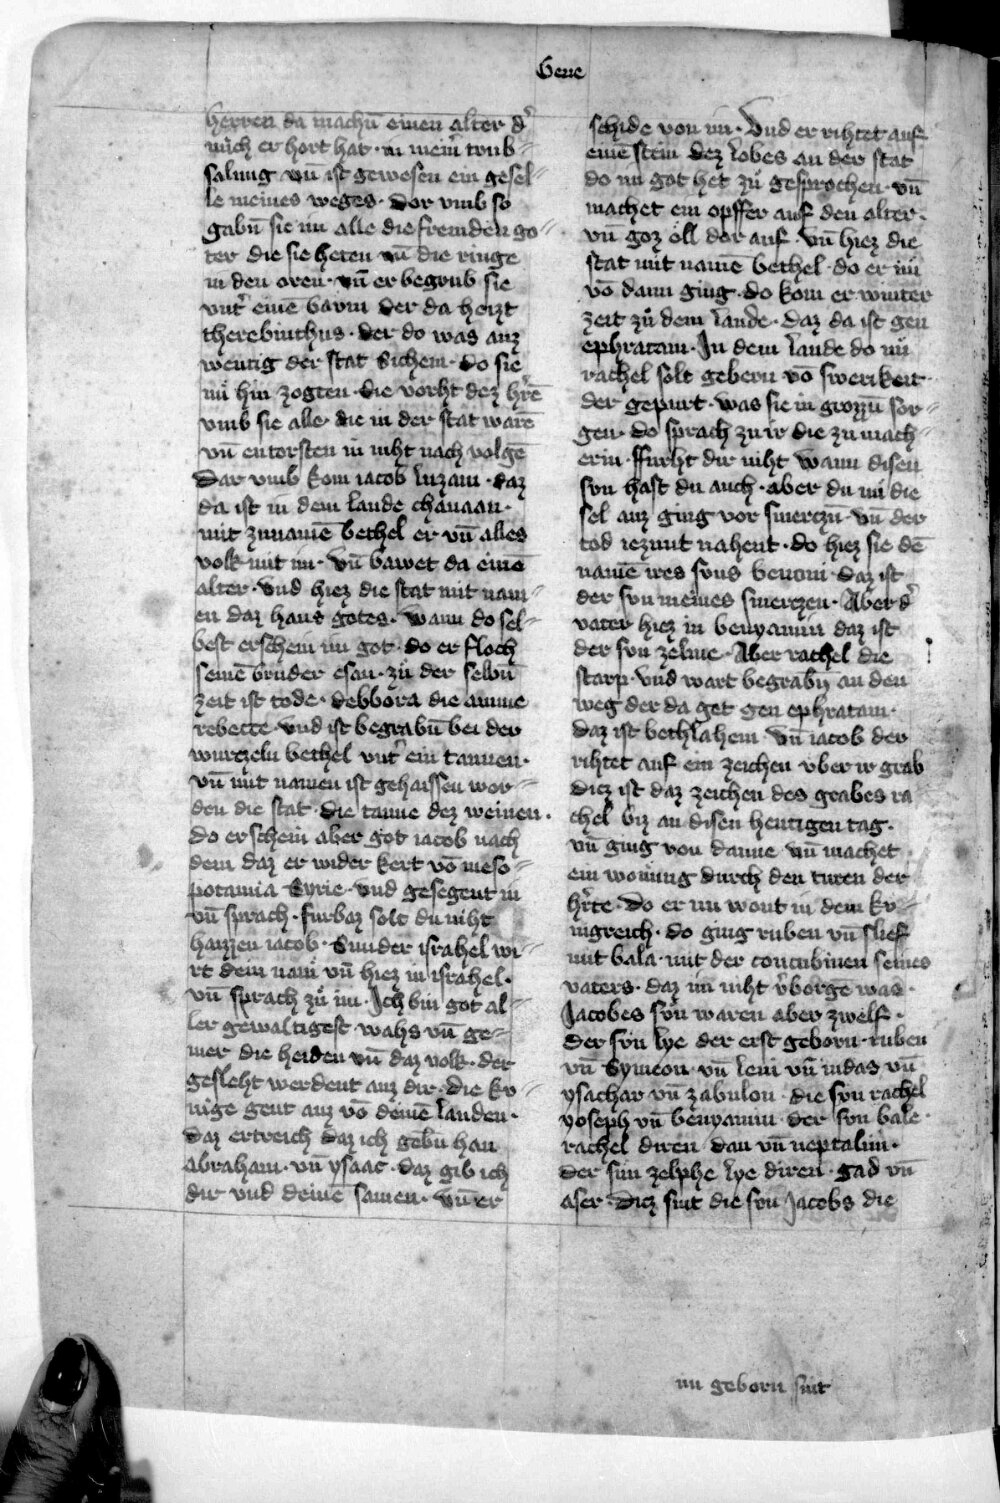 Gene
herren da machū einen alter d̛
mich er hort hat · in meim trub
salung vn̄ ist gewesen ein gesel
le meines weges · dor vmb so
gabn̄ sie im alle die fremden go
ter die sie heten vn̄ die ringe
in den oren · vn̄ er begrub sie
vnt̛ einē bavm der da heizt
therebinthus · der do was auz
wentig der stat Sichem · do sie
nu̇ hin zogten · die vorht dez hr̄ē
vmb sie alle die in der stat warē
vn̄ entorsten in niht nach volgē
Dar vmb kom iacob luzam · daz
da ist in dem lande chanaan ·
mit zunamē bethel er vn̄ alles
volk mit im · vn̄ bawet da einē
alter · Vnd hiez die stat mit nam
en daz haus gotes · wann do sel
best erschein im got · do er floch
seinē bruder esau · zu̇ der selbn̄
zeit ist tode · debbora die amme
rebecce · vnd ist begrabn̄ bei der
wurczeln bethel vnt̛ ein tannen ·
vn̄ mit namen ist gehaissen wor
den die stat · die tanne dez weinen ·
do erschein aber got iacob nach
dem daz er wider kert vō meso
potamia Syrie · vnd gesegent in
vn̄ sprach · furbaz solt du niht
haizzen iacob · Sunder israhel wi
rt dein nam vn̄ hiez in israhel ·
vn̄ sprach zu̇ im · Ich bin got al
ler gewaltigest wahs vn̄ ge
mer die heiden vn̄ daz volk · der
gesleht werdent auz dir · die kv
nige gent auz vō deinē landen ·
daz ertreich daz ich gebn̄ han
abraham · vn̄ ysaac · daz gib ich
dir vnd deinē samen · vn̄ er
schide von im · Vnd er rihtet auf
einē stein dez lobes an der stat
do im got het zu̇ gesprochen · vn̄
machet ein opffer auf den alter ·
vn̄ goz öll dor auf · vn̄ hiez die
stat mit namē bethel · do er nu
vō dann ging · do kom er winter
zeit zu̇ dem lande · daz da ist gen
ephratam · In dem lande do nu̇
rachel solt gebern vō swerikeit
der gepurt · was sie in grozzn̄ sor
gen · do sprach zu ir die zu mach
erin · ffurht dir niht wann disen
svn hast du auch · aber du nu die
sel auz ging vor smerczn̄ · vn̄ der
tod iezunt nahent · do hiez sie dē
namē ires svns benoni · daz ist
der svn meines smerczen · Aber d̛
vater hiez in benyamin daz ist
der svn zesme · Aber rachel die
starp · vnd wart begrabn̄ an den
weg der da get gen ephratam ·
daz ist bethlahem · vn̄ iacob der
rihtet auf ein zeichen vber ir grab
dicz ist daz zeichen des grabes ra
chel biz an disen hentigen tag ·
vn̄ ging von danne vn̄ machet
ein woning durch den turen der
hr̄te · do er nu wont in dem kv
nigreich · do ging ruben vn̄ slief
mit bala · mit der concubinen seines
vaters · daz im niht v̛borge was ·
Jacobes svn waren aber zwelf ·
der svn lye der erst geborn · ruben
vn̄ Symeon · vn̄ leui vn̄ iudas vn̄
ysachar vn̄ zabulon · die svn rachel
yoseph vn̄ benyamin · der svn bale ·
rachel diren · dan vn̄ neptalim ·
der sun zelphe lye diren · gad vn̄
aser · dicz sint die svn Jacobs die
im geborn sint